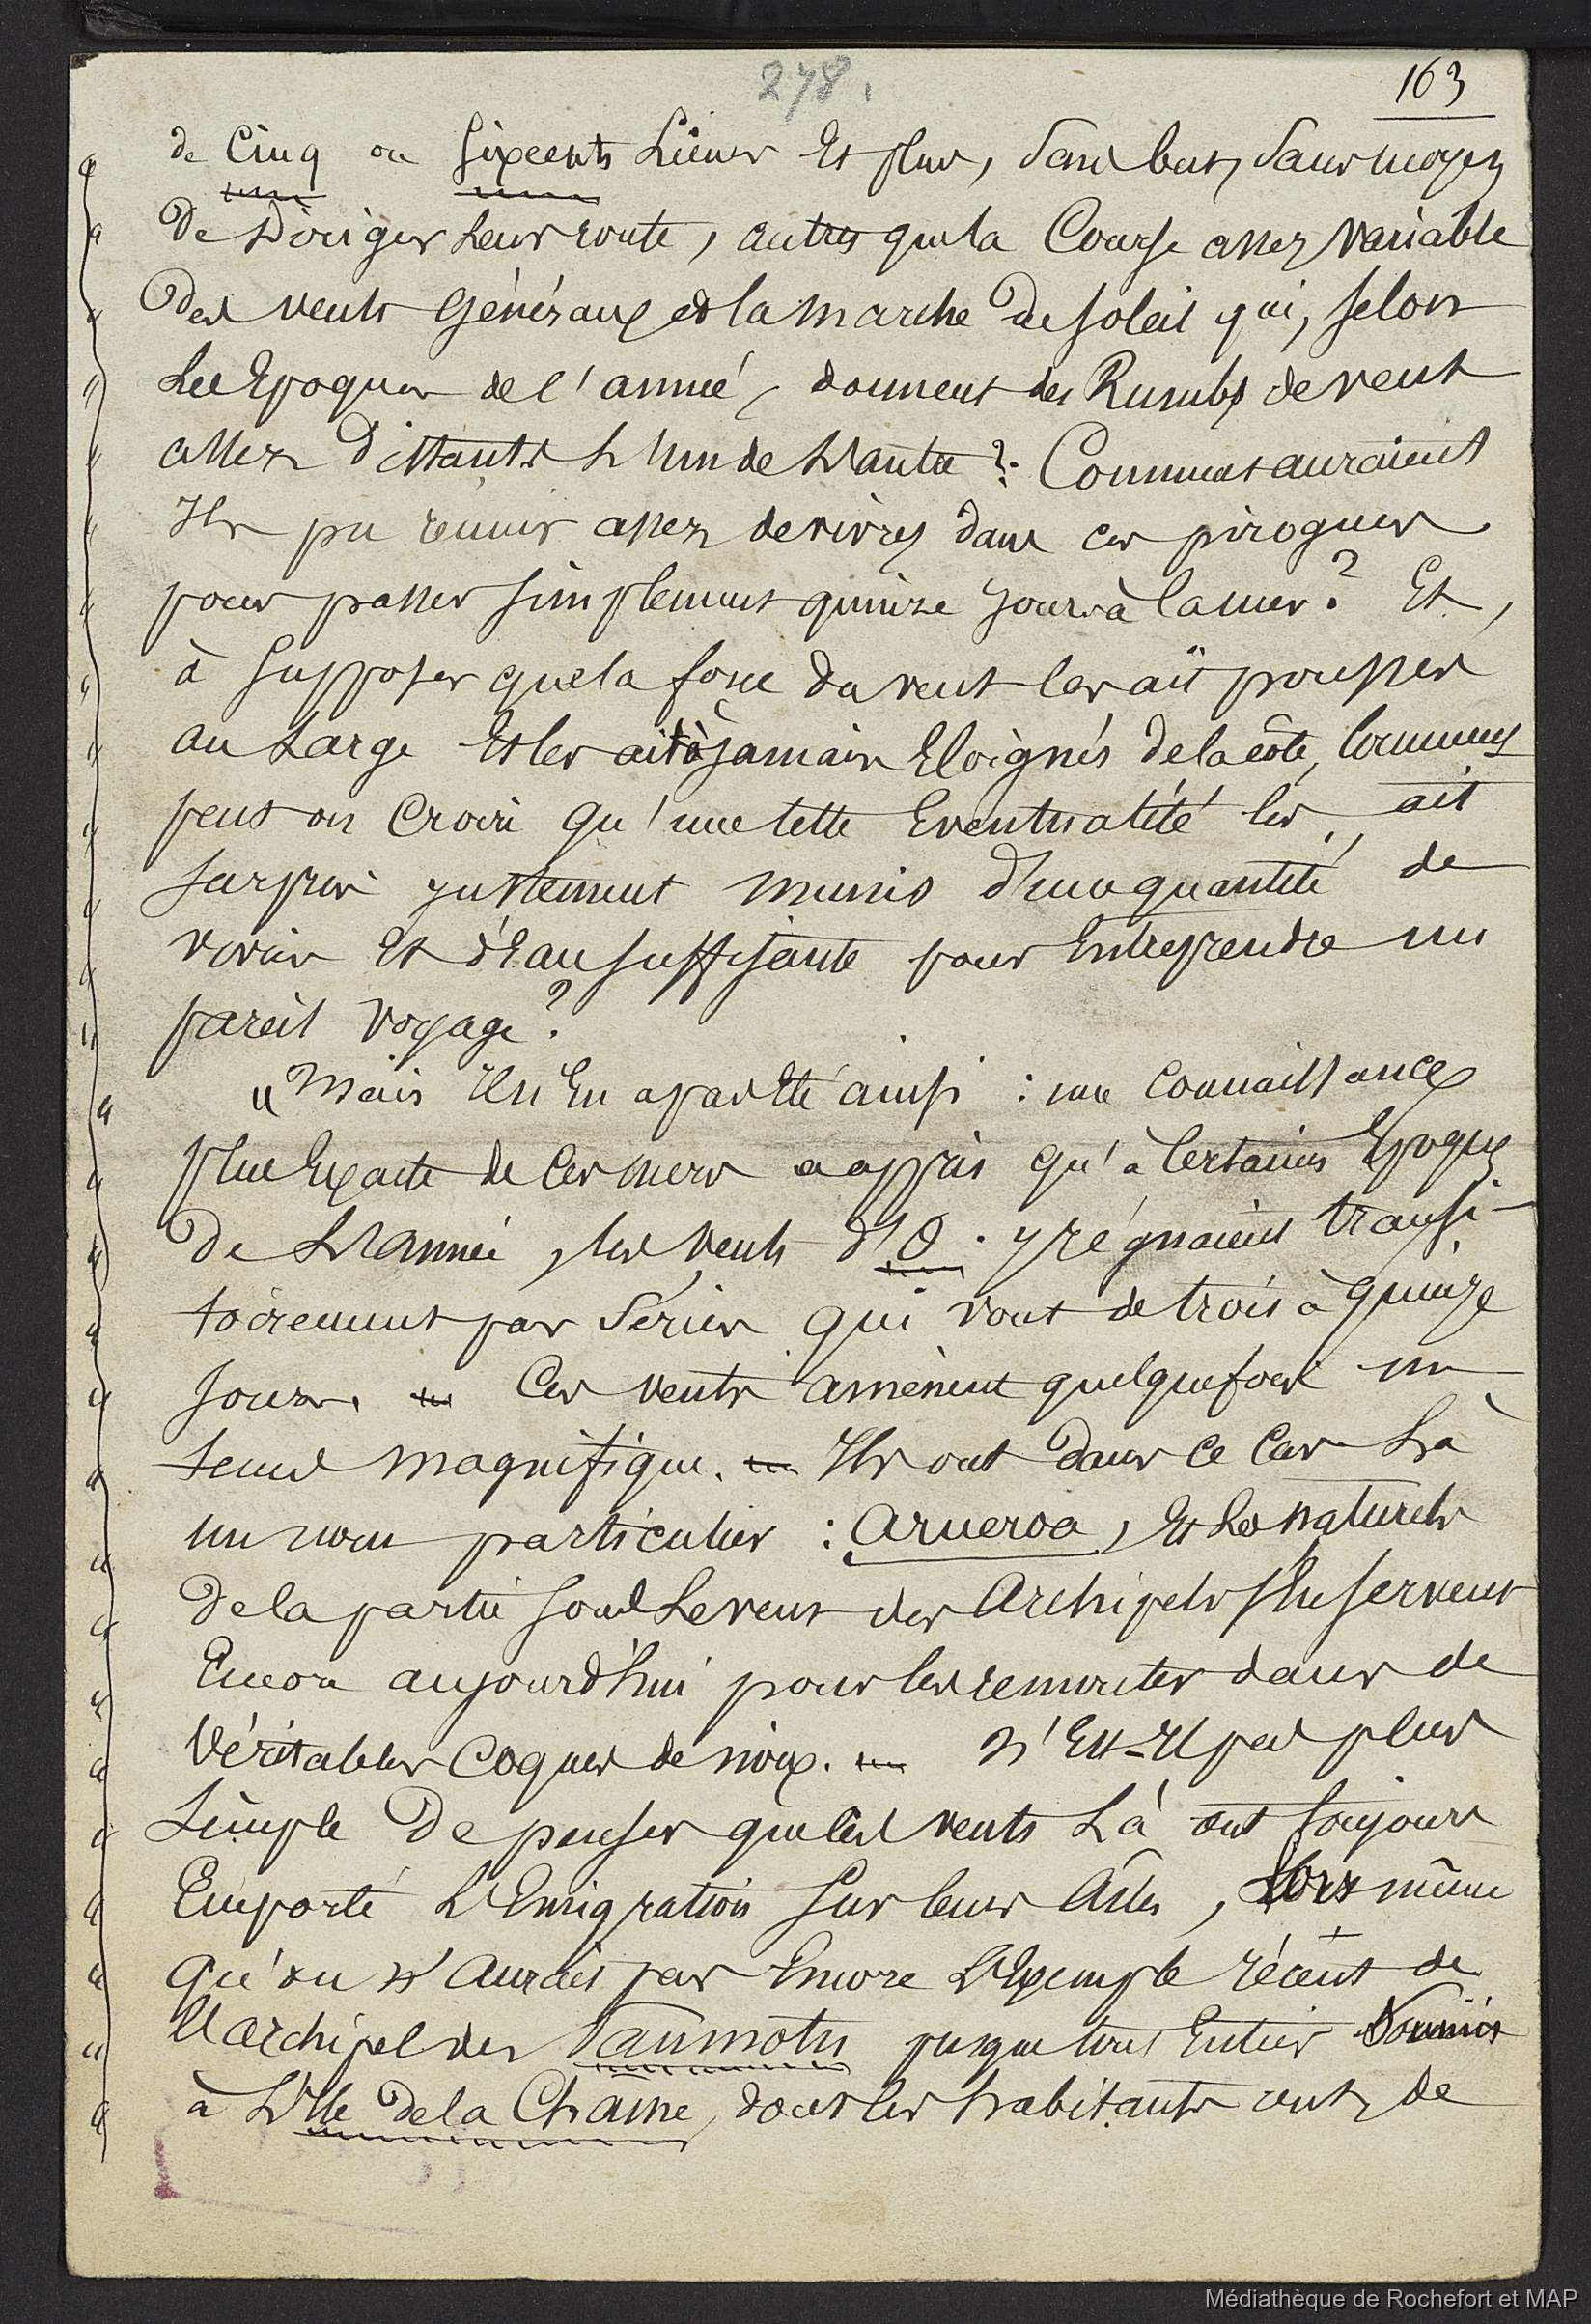 278.
163
de Cinq ou Sixcents Lieues Et plus, Sans but, Sans moyen
De Diriger Leur route, autres que la Course assez variable
Des vents Généraux et la marche du soleil qui, selon
Les Epoques de l'année, donnent des Rumbs de vent
assez Distants L'un de L'autre ? Comment auraient
Ils pu réunir assez de vivres dans ces pirogues
pour passer simplement quinze jours à la mer ? Et,
à supposer que la force du vent les ait poussés
au Large Et les ait à jamais Eloignés de la côte, Comment
peut on Croire qu'une telle Eventualité les ait
surpris justement munis d'une quantité de
vivres Et d'Eau suffisante pour Entreprendre un
pareil voyage ?
" Mais Il n'En a pas Eté ainsi : une connaissance
plus Exacte de Ces mers a appris qu'à Certaines Epoques
De L'année, les vents d'O. y régnaient transi-
toirement par Séries qui vont de trois à quinze
jours. Ces vents amènent quelquefois un
temps magnifique. Ils ont dans ce Cas Là
un nom particulier : arueroa, Et Les naturels
De la partie sous Le vent des Archipels s'En servent
Encore aujourd'hui pour les remonter dans de
Véritables Coques de noix. N'Est-Il pas plus
Simple De penser que les vents Là ont toujours
Emporté L'Emigration sur leurs Ailes, Lors même
qu'on N'Aurait pas Encore L'Exemple récent de
L'archipel des Paumotu presque tout Entier Soumis
à L'Ile de la Chaine, dont les habitants ont, de
Médiathèque de Rochefort et MAP